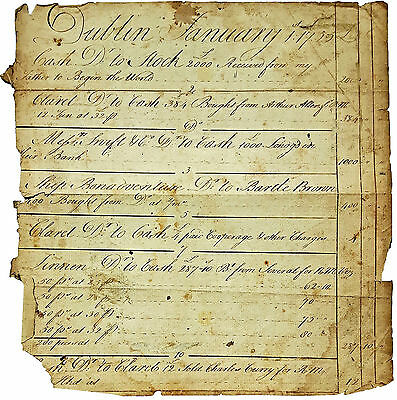 Dublin January 1st 173
Cash Dr. to Stock £2000 Received from my
Father to Begin the World 200
2
Claret Dr. to Cash 384 Bought from Arthur
12 Tun at 32 384
Messrs. Swift & Co. Dr. to Cash 1000 Lodg'd in
their Bank 1000
3
Ship Bonaventure Dr. to Bartle Brown
400 Bought from Do. at 400
5
Claret Dr. to Cash 4 paid Cooperage & other Charges 4
Linnen Dr. to Cash 287-10 Bt. from Several for
50 ps. at 2 62-10
50 ps. at 28 70
50 ps. at 30 75
50 ps. at 80
200 pieces at 287-10
10
Dr. to Claret 12 Sold Charles Curry for
Hhd at 12